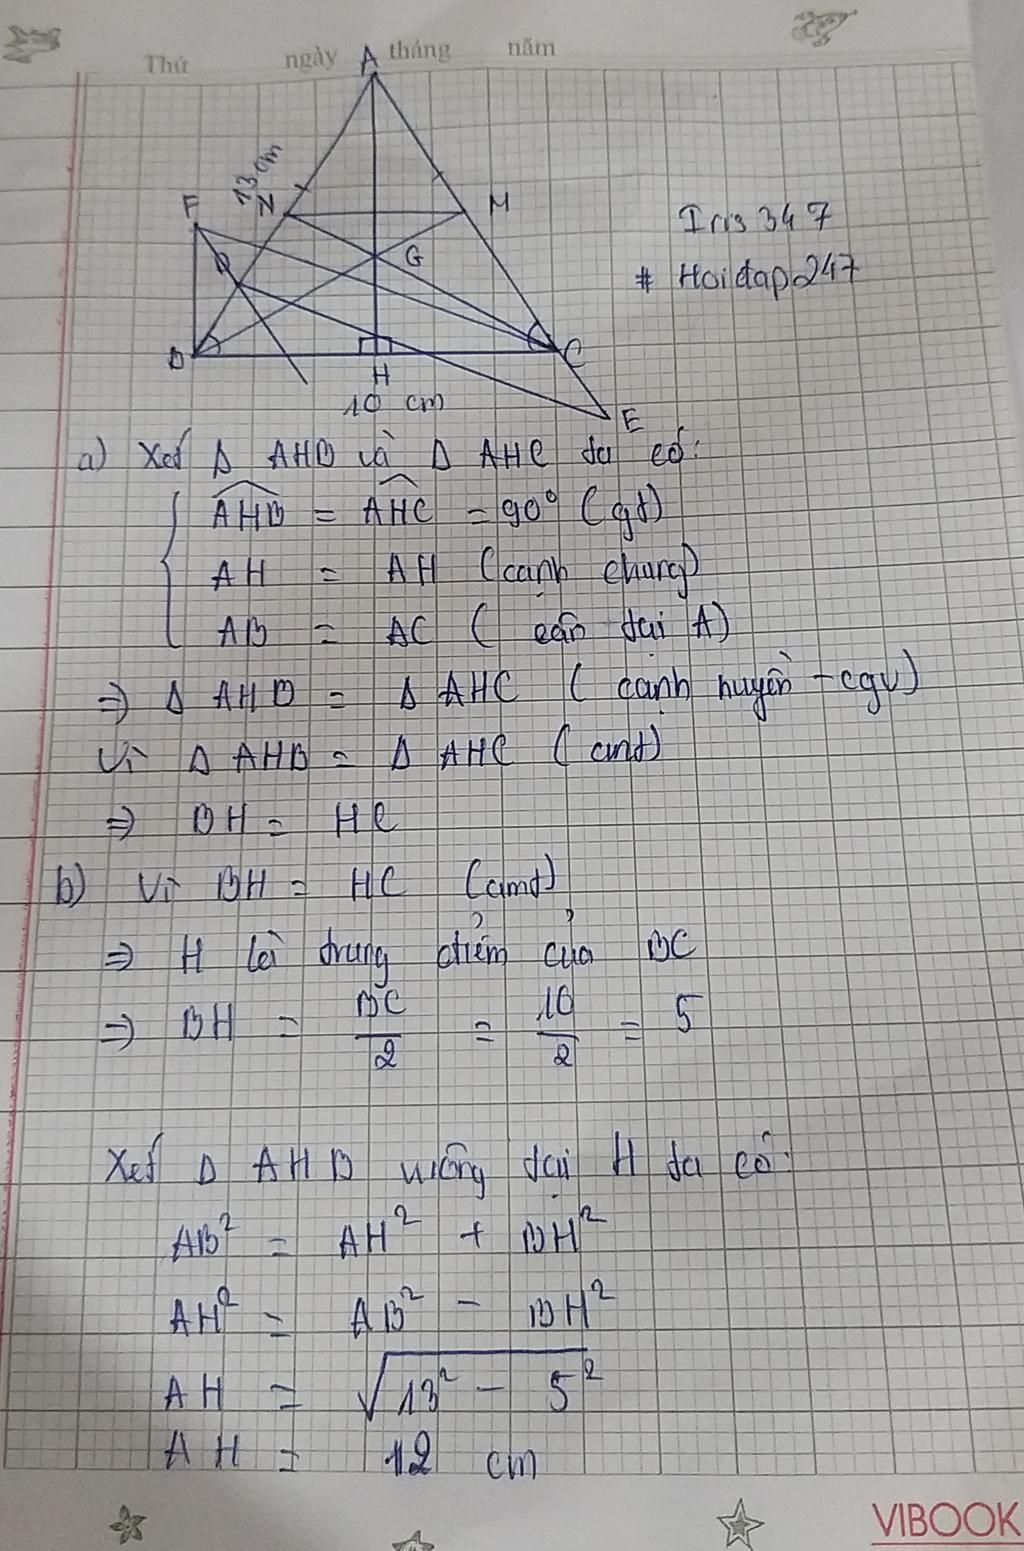 Thứ ngày tháng năm
A
13 cm
F
N
M
G
D
B
H
C
10 cm
E
Iris 347
# Hoidap247
a) Xét Δ AHB và Δ AHC ta có:
AHB = AHC = 90° (gt)
AH = AH (cạnh chung)
AB = AC ( cân tại A)
=> Δ AHB = Δ AHC ( cạnh huyền - cgv)
Vì Δ AHB = Δ AHC ( cmt)
=> BH = HC
b) Vì BH = HC (cmt)
=> H là trung điểm của BC
=> BH = BC/2 = 10/2 = 5
Xét Δ AHB vuông tại H ta có:
AB² = AH² + BH²
AH² = AB² - BH²
AH = √13² - 5²
AH = 12 cm
VIBOOK